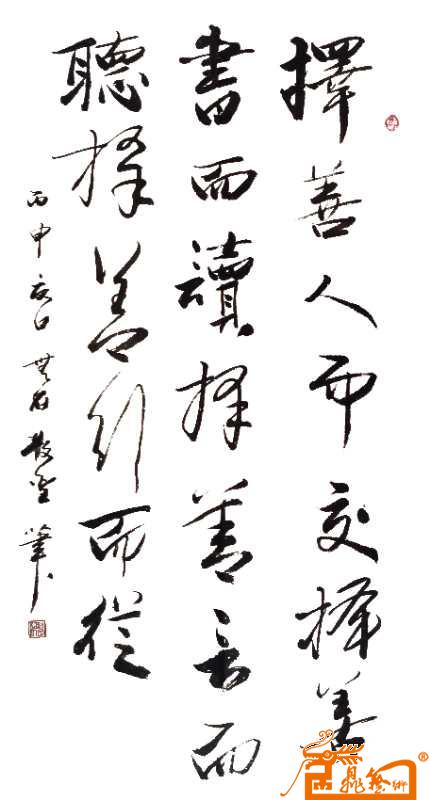 擇善人而交擇善
書而讀擇善言而
聽擇善行而從
丙申